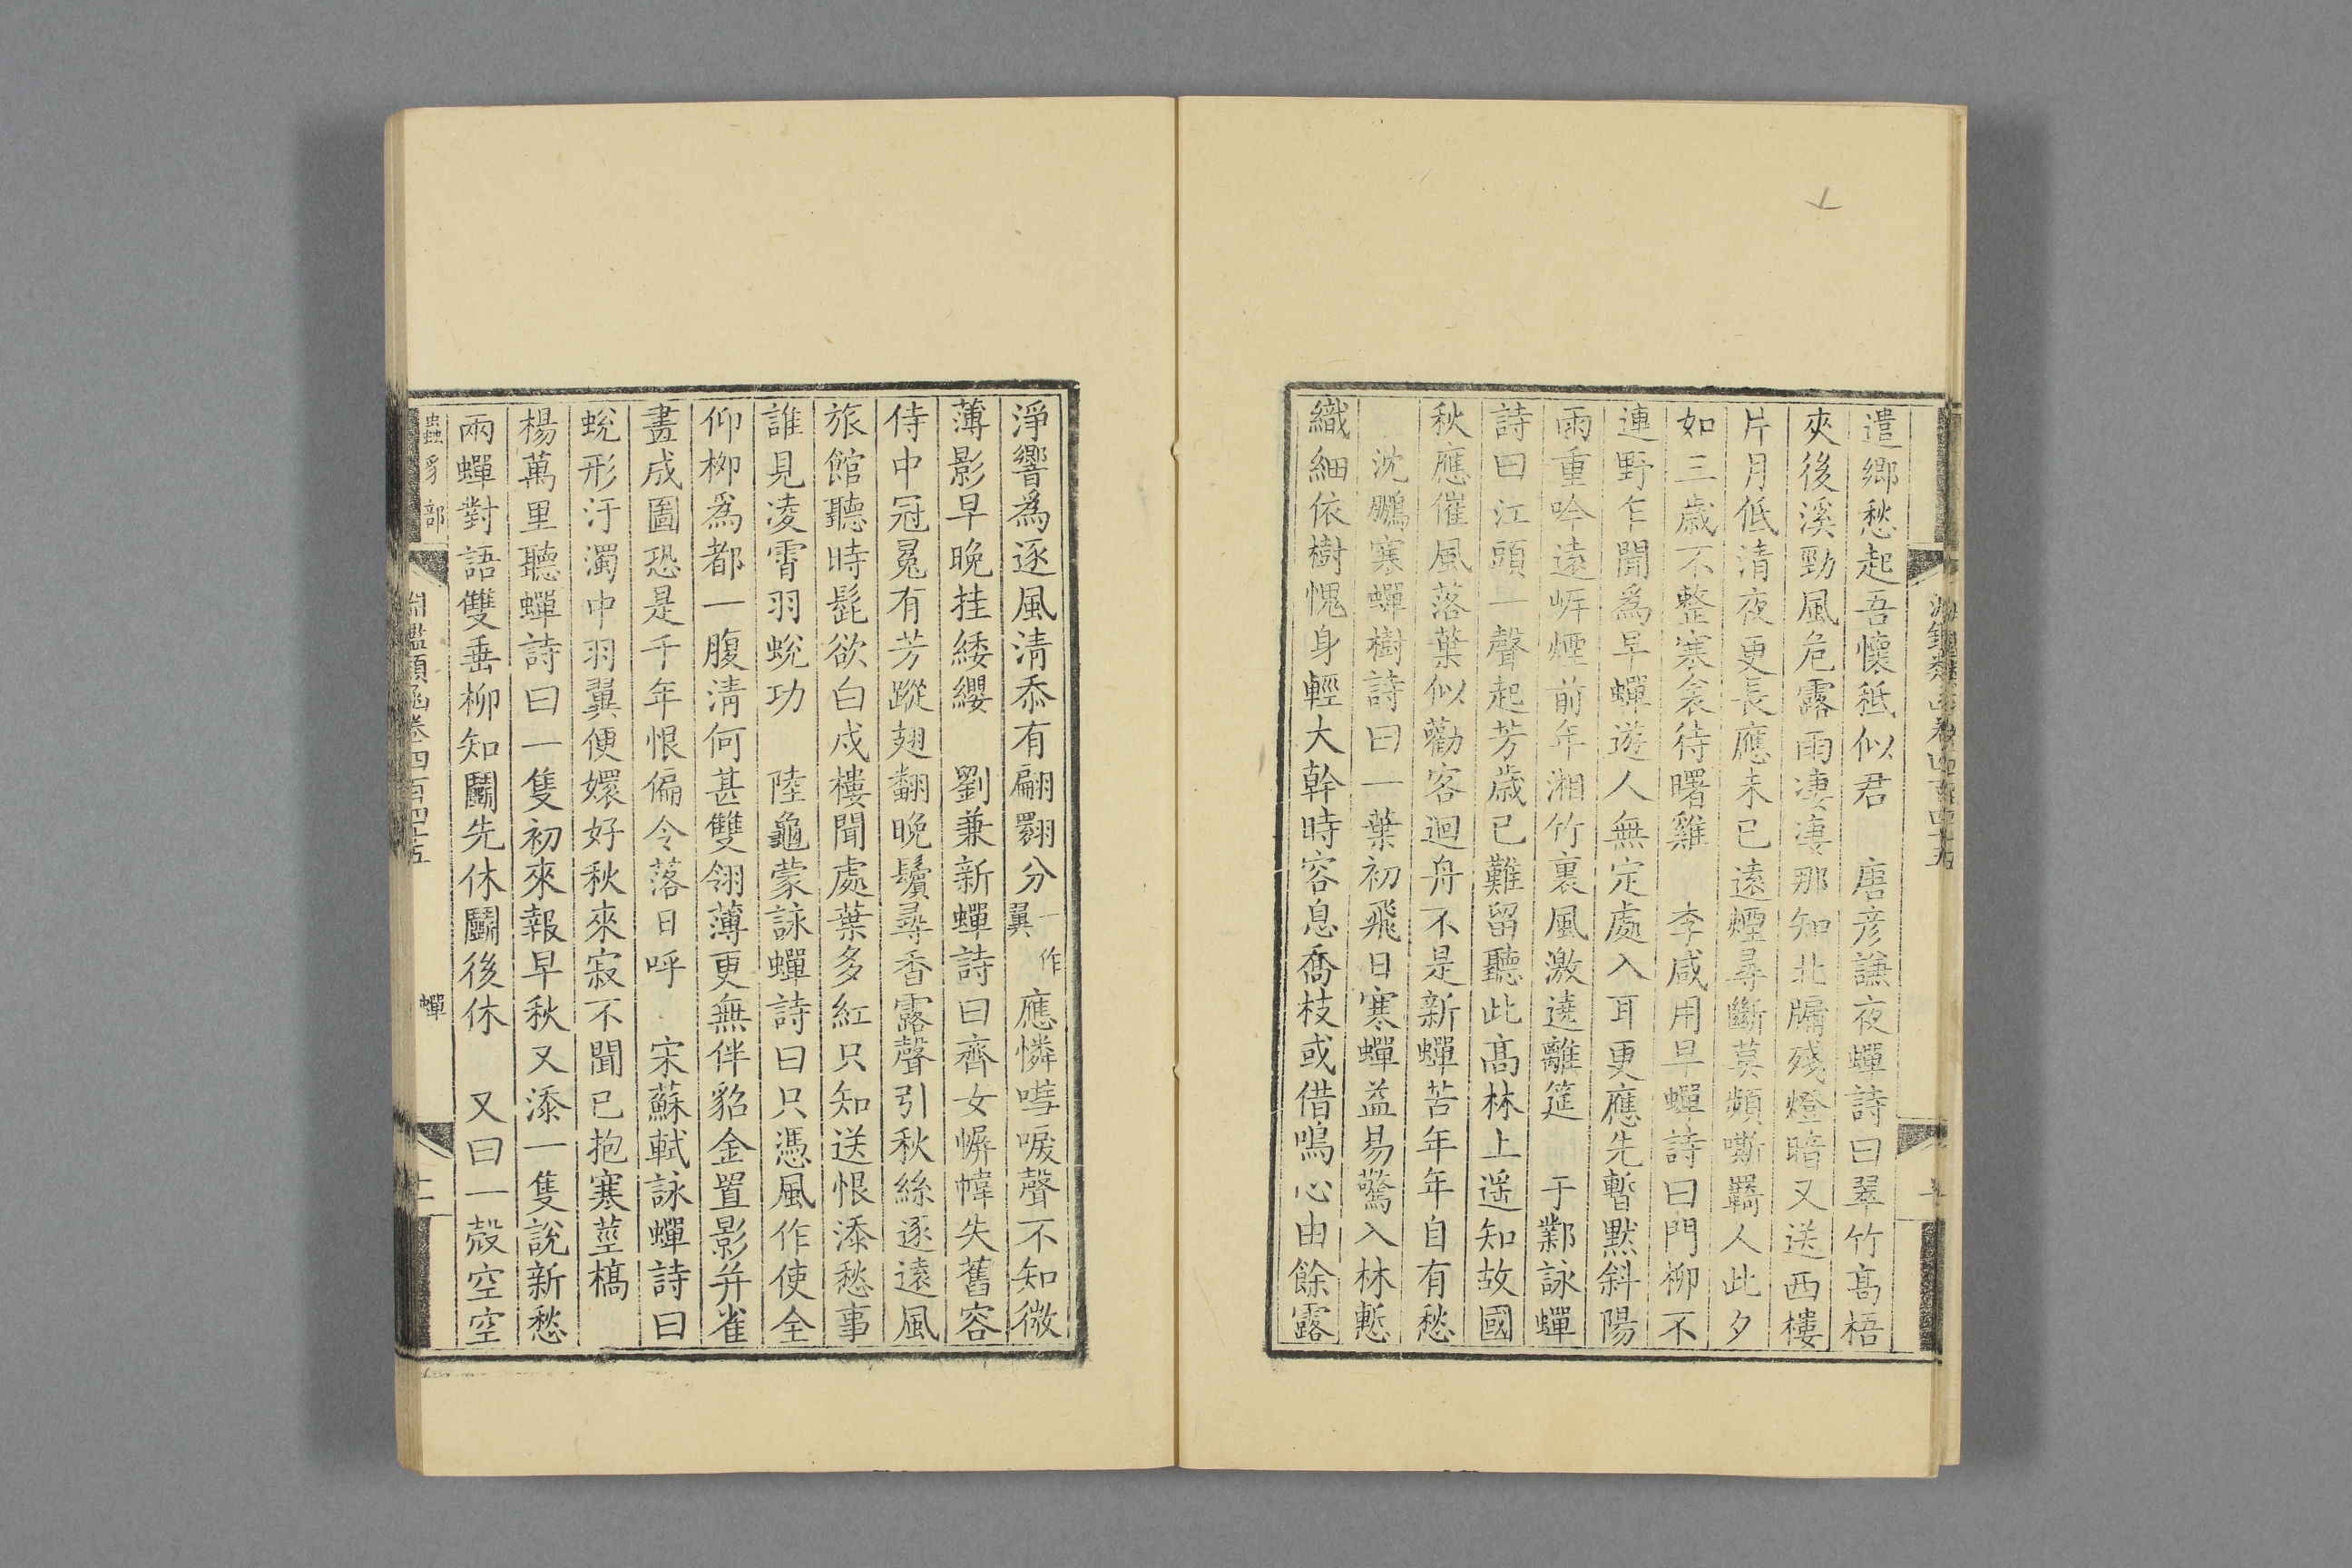 遣鄉愁起吾懷秪似君　唐彦謙夜蟬詩曰翠竹髙梧
夾後溪勁風危露雨凄凄那知北牖殘燈暗又送西樓
片月低清夜更長應未已遠煙尋斷莫頻嘶羇人此夕
如三歲不整寒衾待曙雞　李咸用早蟬詩曰門柳不
連野乍聞爲早蟬遊人無定處入耳更應先暫黙斜陽
雨重吟遠岍煙前年湘竹裏風激遶離筵　于鄴詠蟬
詩曰江頭一聲起芳歲已難留聽此髙林上遥知故國
秋應催風落葉似勸客迴舟不是新蟬苦年年自有愁
沈鵬寒蟬樹詩曰一葉初飛日寒蟬益易驚入林慙
織細依樹愧身輕大幹時容息喬枝或借鳴心由餘露
淨響爲逐風清忝有翩翾分一作翼應憐嘒唳聲不知微
薄影早晚挂緌纓　劉兼新蟬詩曰齊女幈幃失舊容
侍中冠冕有芳蹤翅翻晚鬢尋香露聲引秋絲逐遠風
旅館聽時髭欲白戍樓聞處葉多紅只知送恨添愁事
誰見凌霄羽蛻功　陸龜蒙詠蟬詩曰只憑風作使全
仰栁爲都一腹清何甚雙翎薄更無伴貂金置影并雀
畫成圖恐是千年恨偏令落日呼　宋蘇軾詠蟬詩曰
蛻形汙濁中羽翼便嬛好秋來寂不聞已抱寒莖槁
楊萬里聽蟬詩曰一隻初來報早秋又添一隻說新愁
兩蟬對語雙垂柳知鬭先休鬭後休　又曰一殼空空
蟲豸部
淵鑑類函卷四百四十五
蟬